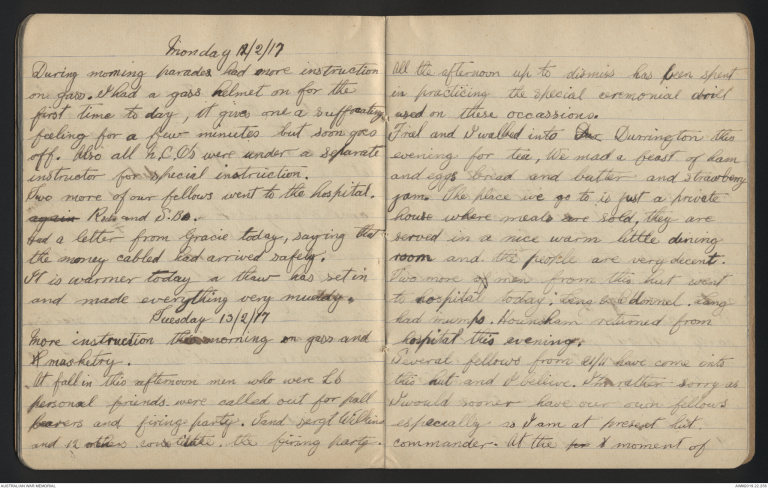 Monday 12/2/17
During morning parades had more instruction
on gass. I had a gass helmet on for the
first time to day, it gives one a suffocating
feeling for a few minutes but soon goes
off. Also all N.C.O's were under a separate
instructor for special instruction.
Two more of our fellows went to the hospital.
again and
Had a letter from Gracie today, saying that
the money cabled had arrived safely.
It is warmer today a thaw has set in
and made everything very muddy.
Tuesday 13/2/17
More instruction this morning on gass and
masketry.
At fall in this afternoon men who were
personal friends were called out for pall
bearers and firing party. I and sergt Wilkins
and 12 others the firing party.
All the afternoon up to dismiss has been spent
in practicing the special ceremonial drill
used on these occassions.
and I walked into Durrington this
evening for tea, We mad a feast of ham
and eggs bread and butter and strawberry
jam. The place we go to is just a private
house where meals are sold, they are
served in a nice warm little dining
room and the people are very decent.
Two more of men from this hut went
to hospital today. Lang
had mumps. Hounsham returned from
hospital this evening.
Several fellows from have come into
this hut and I believe. I'm rather sorry as
I would sooner have our own fellows
especially as I am at present hut
commander. At the moment of
AUSTRALIAN WAR MEMORIAL